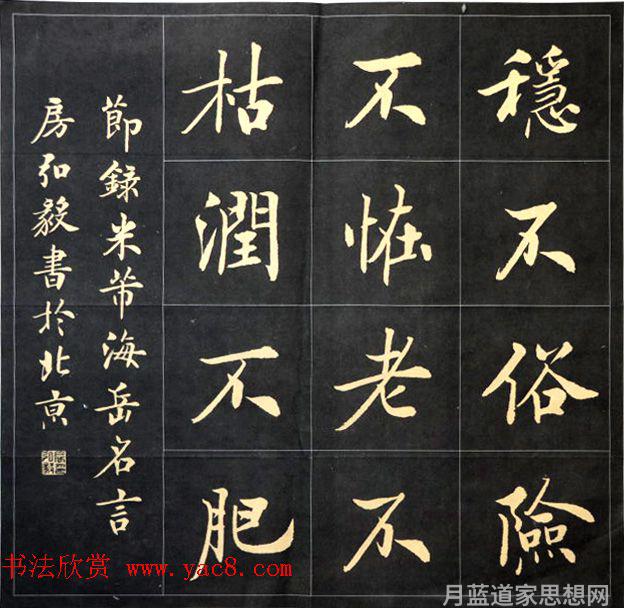 穩不俗險
不恠老不
枯潤不肥
節錄米芾海岳名言
房弘毅書於北京
书法欣赏 www.yac8.com
月蓝道家思想网